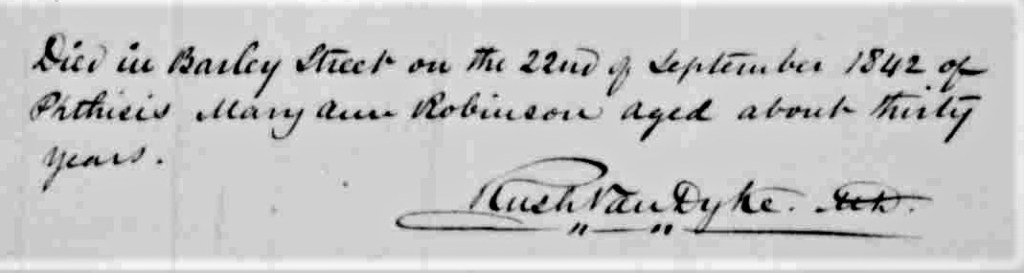 Died in Barley Street on the 22nd of September 1842 of
Phthisis Mary Ann Robinson aged about thirty
years.
Rush Van Dyke. MD.